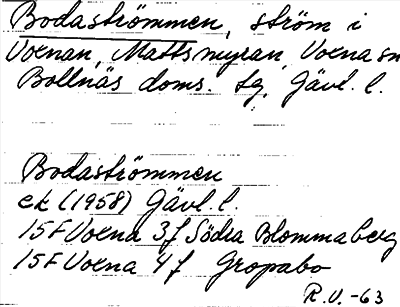 Bodaströmmen, ström i
Voxnan, Mattsmyran, Voxna sn
Bollnäs doms. tg, Gävl. l.
Bodaströmmen
ek (1958) Gävl. l.
15F Voxna 3f Södra Blommaberg
15F Voxna 4f Gropabo
R.V. -63